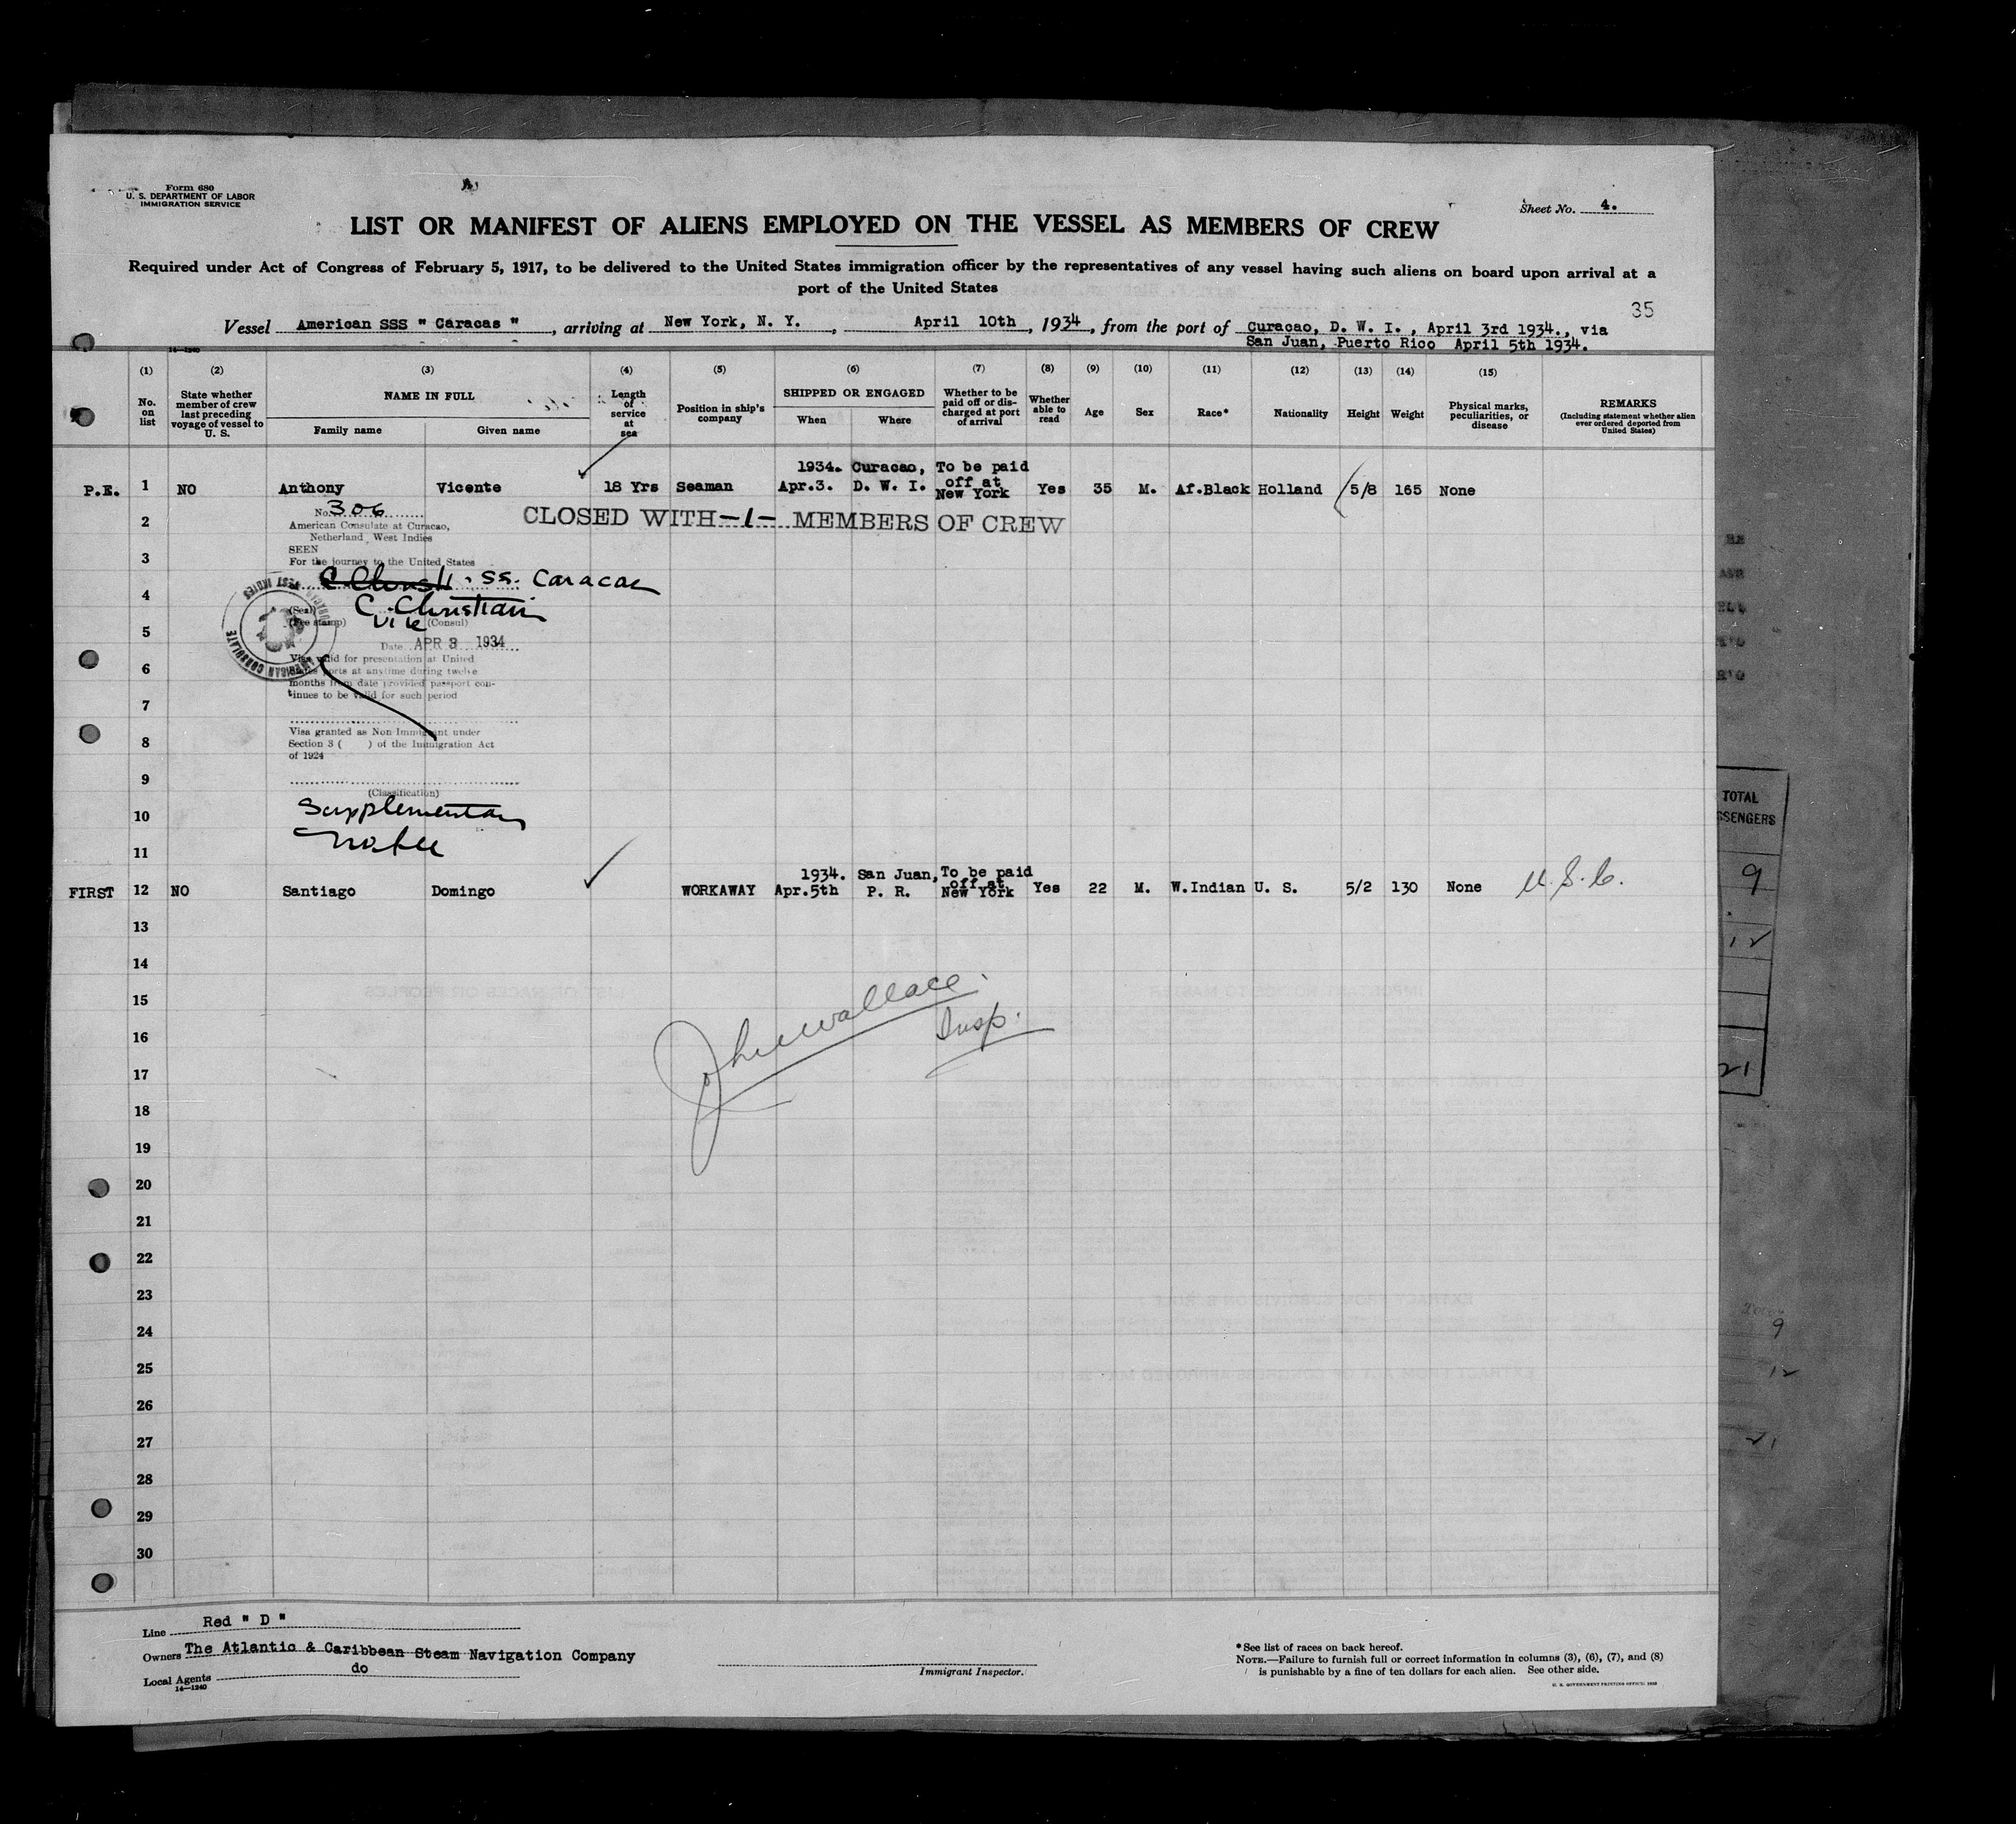 Form 680
U. S. DEPARTMENT OF LABOR
IMMIGRATION SERVICE
Sheet No. 4.
LIST OR MANIFEST OF ALIENS EMPLOYED ON THE VESSEL AS MEMBERS OF CREW
Required under Act of Congress of February 5, 1917, to be delivered to the United States immigration officer by the representatives of any vessel having such aliens on board upon arrival at a
port of the United States
35
Vessel American SSS " Caracas ", arriving at New York, N. Y., April 10th, 1934, from the port of Curacao, D. W. I. , April 3rd 1934., via
San Juan, Puerto Rico April 5th 1934.
14—1240
(1) (2) (3) (4) (5) (6) (7) (8) (9) (10) (11) (12) (13) (14) (15)
No. on list State whether member of crew last preceding voyage of vessel to U. S. NAME IN FULL Length of service at sea Position in ship's company SHIPPED OR ENGAGED Whether to be paid off or discharged at port of arrival Whether able to read Age Sex Race* Nationality Height Weight Physical marks, peculiarities, or disease REMARKS (Including statement whether alien ever ordered deported from United States)
Family name Given name When Where
1934. Curacao, To be paid
P.E. 1 NO Anthony Vicente 18 Yrs Seaman Apr.3. D. W. I. off at New York Yes 35 M. Af.Black Holland 5/8 165 None
No. 306
CLOSED WITH -1- MEMBERS OF CREW
2
American Consulate at Curacao,
Netherland West Indies
SEEN
3
For the journey to the United States
C Christi . SS. Caracas
4
(Seal) C. Christian
(Fee stamp) Vice (Consul)
AMERICAN CONSULATE
WEST INDIES
5
Date APR 3 1934
Visa valid for presentation at United
6
States ports at anytime during twelve
months from date provided passport con-
tinues to be valid for such period
7
Visa granted as Non-Immigrant under
8
Section 3 ( ) of the Immigration Act
of 1924
9
(Classification)
10
Supplementary
11
1934. San Juan, To be paid
FIRST 12 NO Santiago Domingo WORKAWAY Apr.5th P. R. off at New York Yes 22 M. W.Indian U. S. 5/2 130 None U.S.C.
13
14
15
John Wallace
Insp.
16
17
18
19
20
21
22
23
24
25
26
27
28
29
30
Line Red " D "
Owners The Atlantic & Caribbean Steam Navigation Company
Local Agents do
14—1240
Immigrant Inspector.
*See list of races on back hereof.
NOTE.—Failure to furnish full or correct information in columns (3), (6), (7), and (8)
is punishable by a fine of ten dollars for each alien. See other side.
U. S. GOVERNMENT PRINTING OFFICE: 1933
TOTAL
SSENGERS
9
12
21
9
12
21